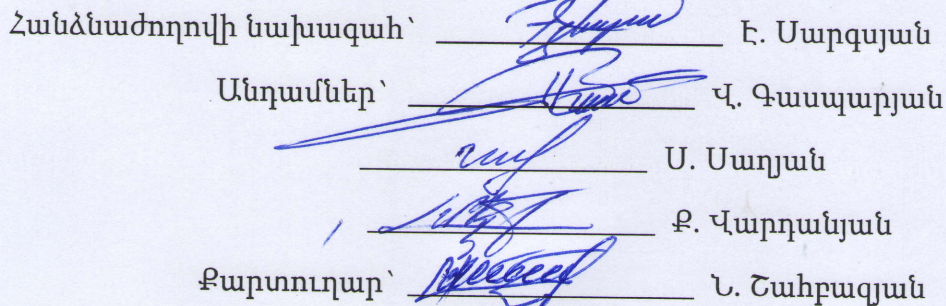 Հանձնաժողովի նախագահ՝ Է. Սարգսյան
Անդամներ՝ Վ. Գասպարյան
Ս. Սաղյան
Ք. Վարդանյան
Քարտուղար՝ Ն. Շահբազյան